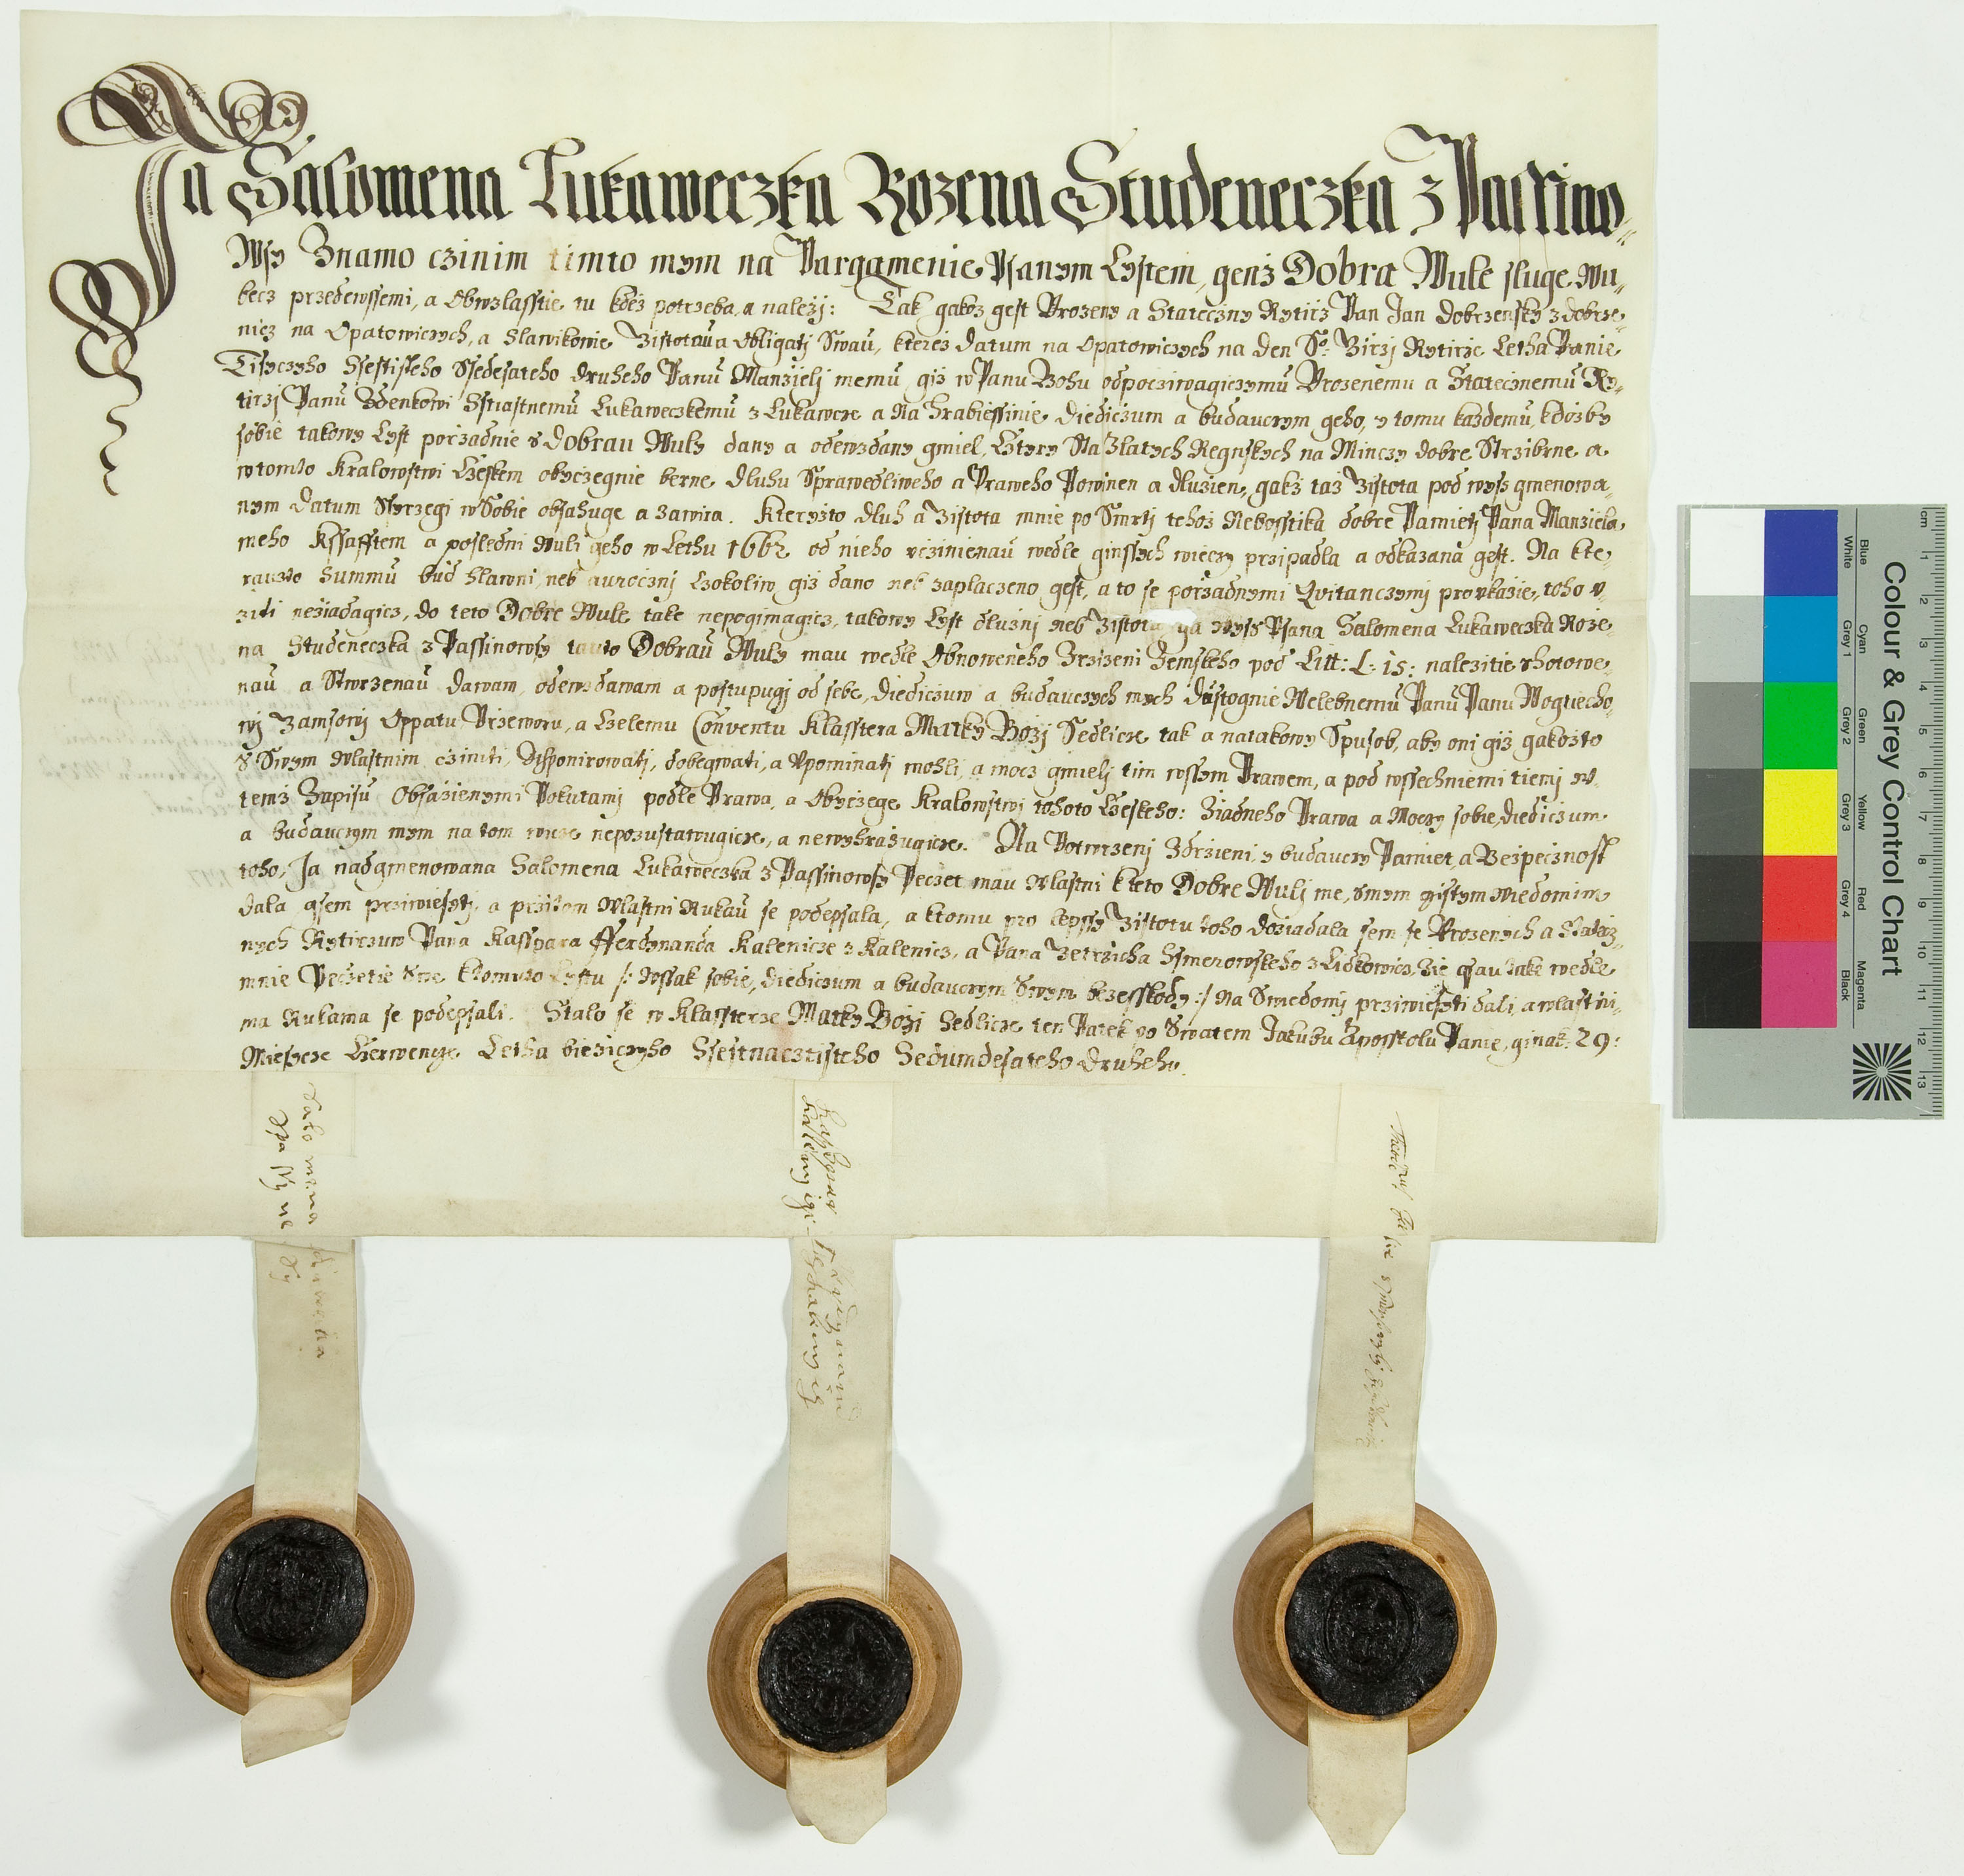 Ja Salomena Lukaweczka Rozena Studeneczka z Passino„
Wsy Znamo czinim timto mym na Pargamenie Psanym Lystem, genz Dobra Wule sluge, Wu„
kecz przedewssemi, a Obwzlasstie, tu kdez potrzeba, a nalezj: Tak gakoz gest Vrozeny a Stateczny Rytirz Pan Jan Dobrzensky z Dobrze„
nicz na Opatowiczych, a Slawikowie Zistotau a Obligatj Swau, kterez Datum na Opatowiczych na den S° Zirzj Rytirze Letha Panie
Tisyczyho Ssestisteho Ssedesateho druheho Panu Manzielj memu giz w Panu Bohu odpocziwagiczymu Vrozenemu a Statecznemu Ry„
tirzj Panu Zdenkowi Sstiastnemu Lukaweczkemu z Lukawcze a Na Hrabiessinie, Diediczum a budauczym geho, y tomu kazdemu, kdozby
sobie takowy Lyst porzadnie s Dobrau Wuly dany a odewzdany gmiel, Cztyry Sta Zlatych Regnskych na Minczy dobre Strzibrne a
w tomto Kralowstwi Czeskem obyczegnie berne, Dluhu Sprawedliweho a Praweho Powinen a Dluzien, gakz taz Zistota pod wyss gmenowa„
nym Datum Ssyrzegi w Sobie obsahuge a zawira. Kteryzto Dluh a Zistota mnie po Smrtj tehoz Nebosstika dobre Pamieti Pana Manziela
meho Kssafftem a posledni Wuli geho w Lethu 1662 od nieho vczinienau wedle ginssych wieczy przipadla a odkazana gest. Na kte„
rauzto Summu bud Hlawni, neb auroczni Czokoliw giz dano neb zaplaczeno gest, a to se porzadnymi Qvitanczymj prokazie, toho v„
ziti neziadagicz, do teto Dobre Wule take nepogimagicz, takowy Lyst dluzni neb Zistota ga wyss Psana Salomena Lukaweczka Roze„
na Studeneczka z Passinowsy tauto Dobrau Wuly mau wedle Obnoweneho Zrzizeni Zemskeho pod Litt: L: 15: nalezitie zhotowe„
nau a Stwrzenau dawam, odewzdawam a postupugj od sebe, Diediczuw a budauczych mych Dustognie Welebnemu Panu Panu Wogtiecho„
wj Zamsowj Oppatu Przeworu, a Czelemu Conventu Klasstera Matky Bozj Sedlicze, tak a na takowy Spusob, aby oni giz gakozto
s Swym Wlastnim cziniti, Disponirowatj, dobegwati, a Vpominatj mohli, a mocz gmielj tim wssem Prawem, a pod wssechniemi tiemj w
temz Zapisu Obsazienymi Pokutami podle Prawa, a Obyczege Kralowstwj tohoto Czeskeho: Ziadneho Prawa a Moczy sobie, Diediczum
a budauczym mym na tom wicze nepozustawugicze, a newyhrazugicze. Na Potwrzenj Zdrzieni, y budauczy Pamiet, a Bezpecznost
toho, Ja nadgmenowana Salomena Lukaweczka z Passinowsy Peczet mau Wlastni k teto Dobre Wulj me, s mym gistym wiedomim
dala gsem przywiesyti, a przitom Wlastni Rukau se podepsala, a k tomu pro lepssy Zistotu toho doziadala sem se Vrozenych a Statecz„
nych Rytirzuw Pana Kasspara Fferdynanda Kalenicze z Kalenicz, a Pana Zetrzicha Hsmerowskeho z Lidkowicz, Zie gsau take wedle
mnie Peczetie swe k tomuto Lystu /: Wssak sobie, Diediczum a budauczym Swym bezesskody :/ Na Swedomj przywiesyti dali, a wlastni„
ma Rukama se podepsali. Stalo se w Klassterze Matky Bozi Sedlicze ten Patek po Swatem Jakubu Aposstolu Panie, ginak 29:
Miesycze Czerwencze Letha biezicziho Ssestnacztisteho Sedumdesateho Druheho.
Salomena
Kasspar Ferdynand
Colour & Grey Control Chart
Blue
Cyan
Green
Yellow
Red
Magenta
White
Grey 1
Grey 2
Grey 3
Grey 4
Black
cm 1 2 3 4 5 6 7 8 9 10 11 12 13